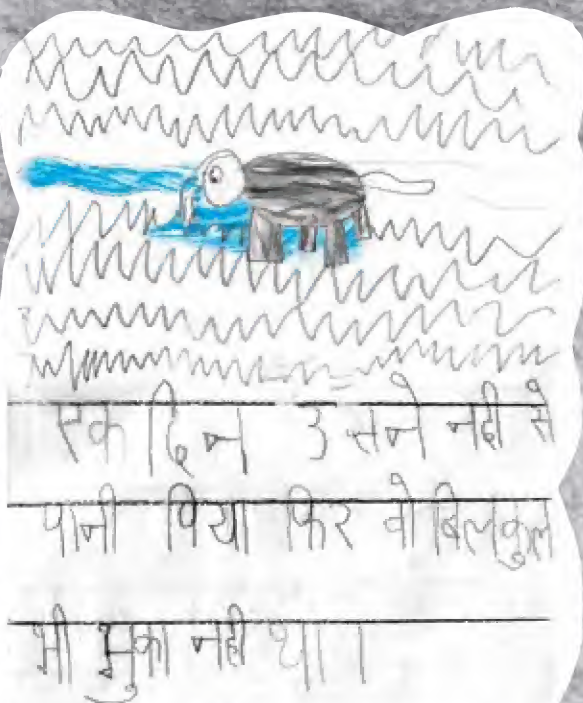 एक दिन उसने नदी से
पानी पिया फिर वो बिलकुल
भी झुका नही था।